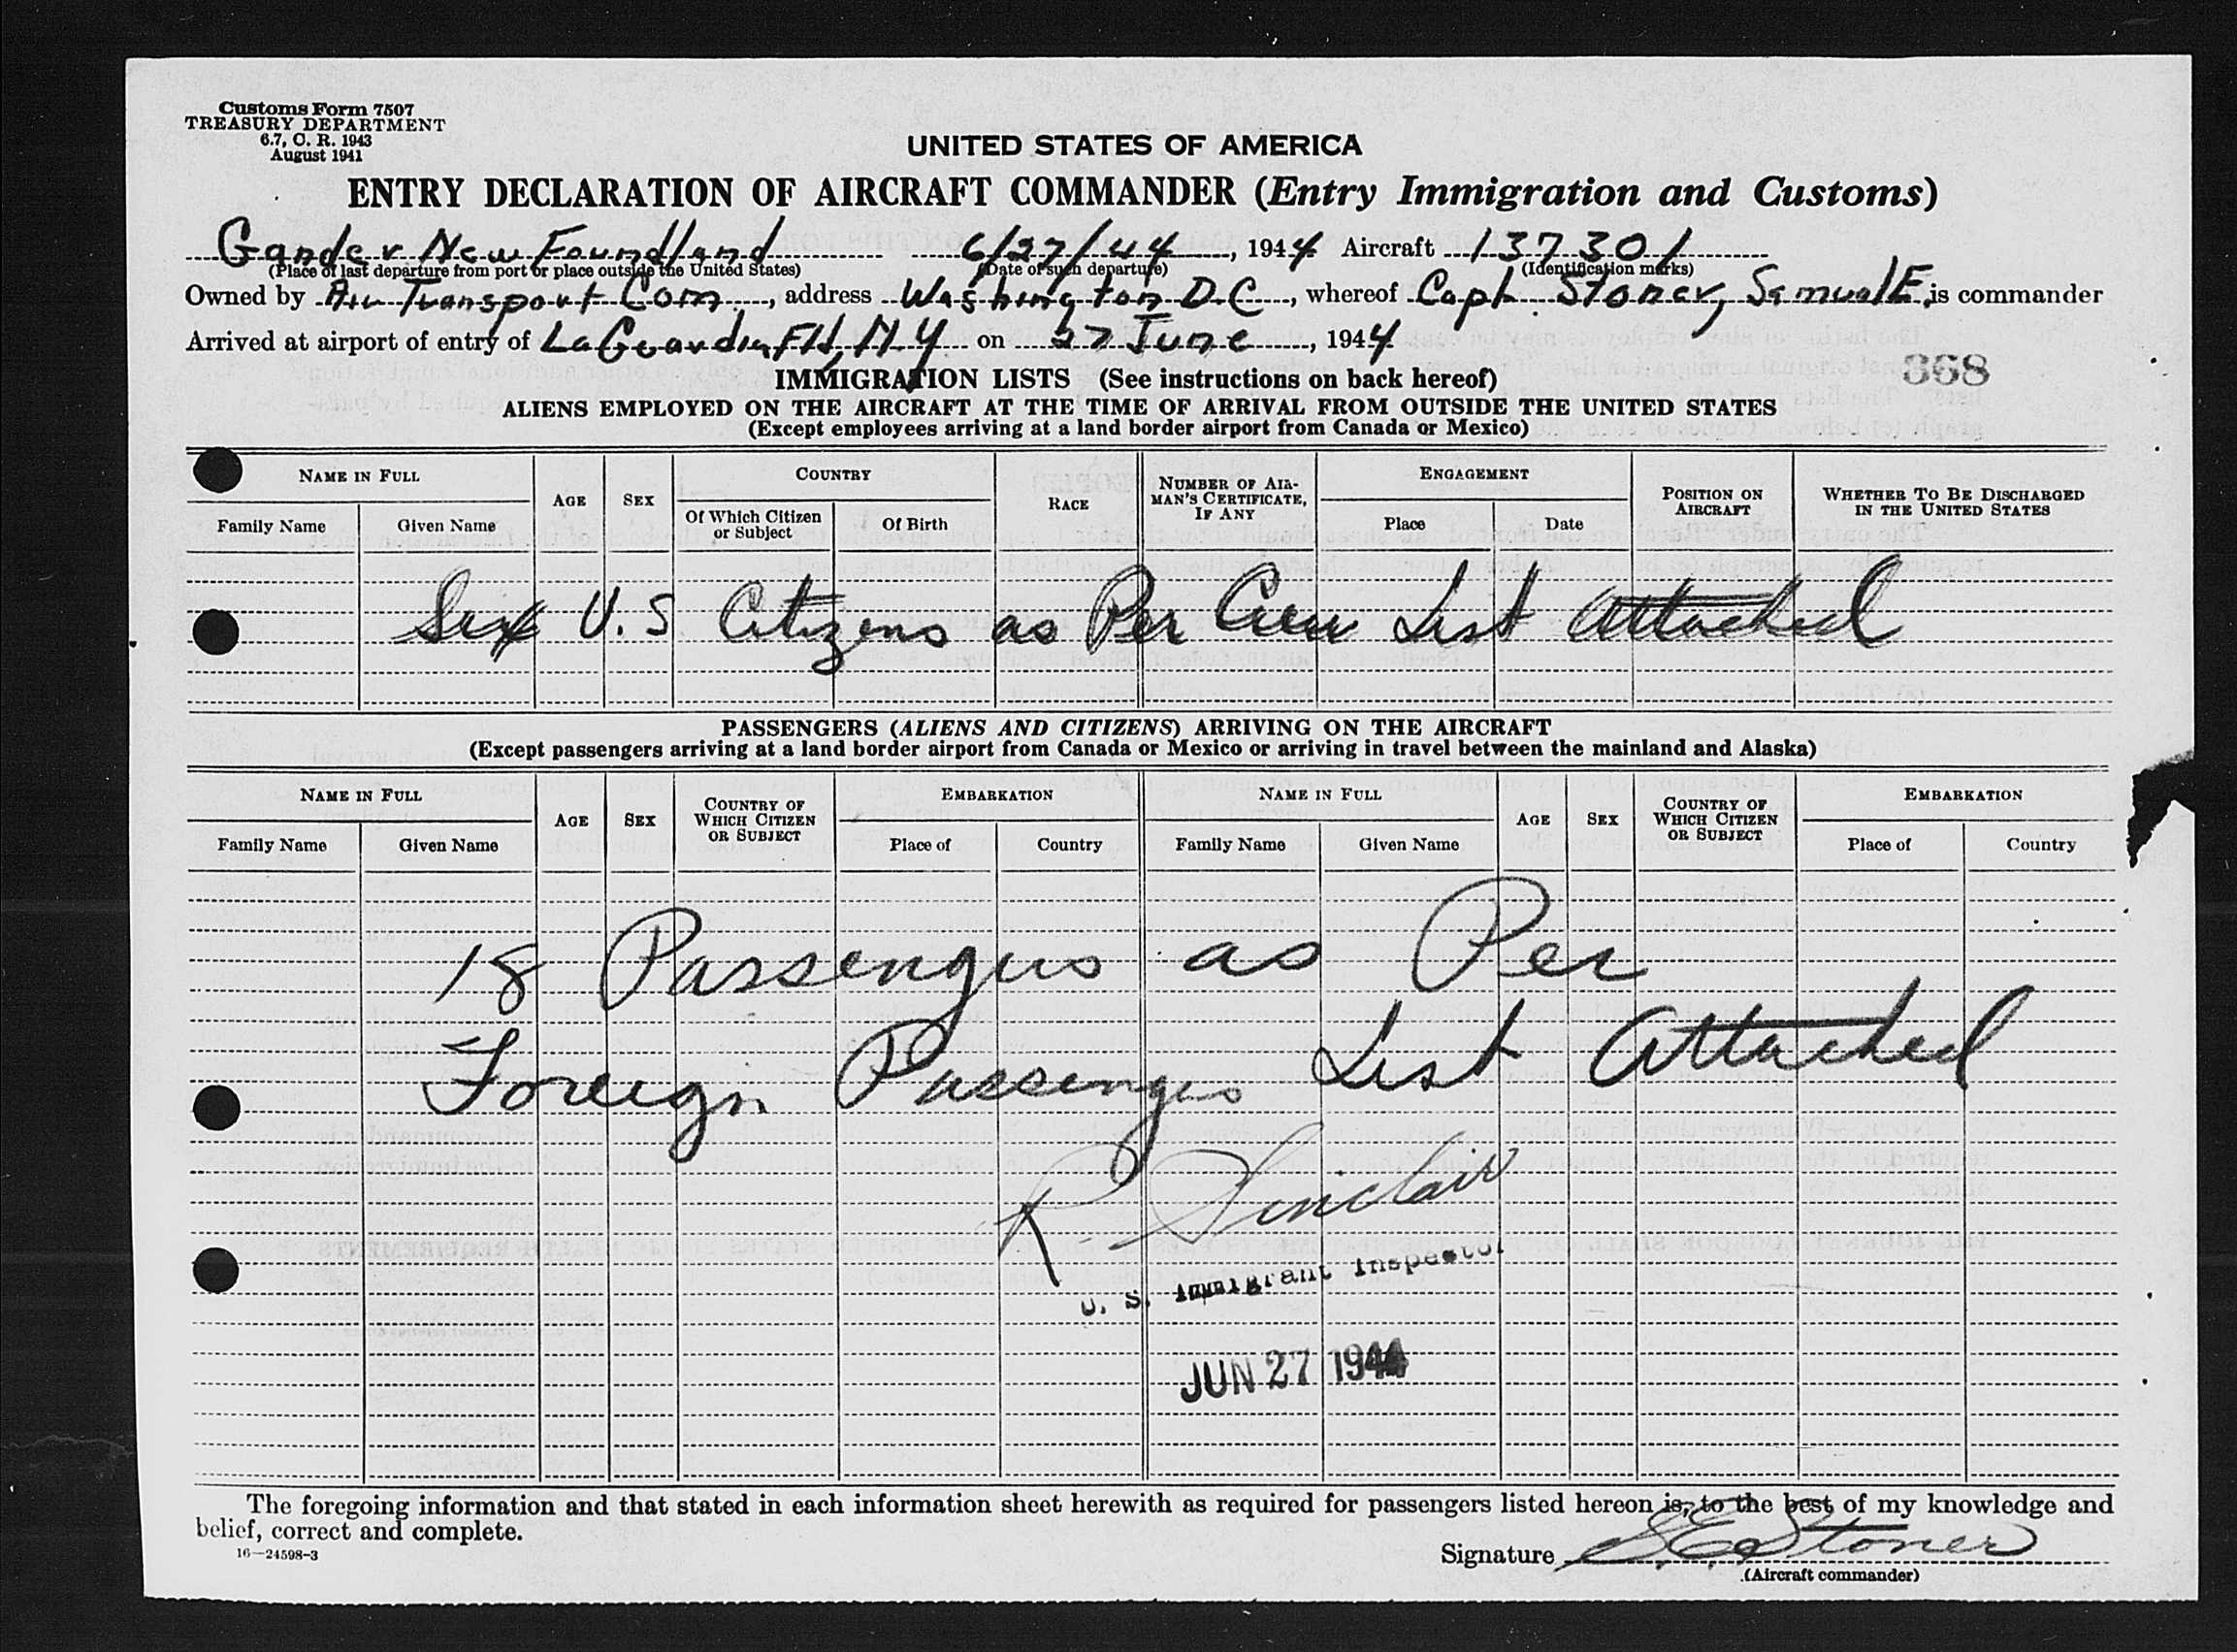 Customs Form 7507
TREASURY DEPARTMENT
6.7, C. R. 1943
August 1941
UNITED STATES OF AMERICA
ENTRY DECLARATION OF AIRCRAFT COMMANDER (Entry Immigration and Customs)
Gander New Foundland 6/27/44, 1944 Aircraft 137301
(Place of last departure from port or place outside the United States) (Date of such departure) (Identification marks)
Owned by Air Transport Com., address Washington D C, whereof Capt. Stoner, Samuel E, is commander
Arrived at airport of entry of LaGuardia Fld, N Y on 27 June, 1944
368
IMMIGRATION LISTS (See instructions on back hereof)
ALIENS EMPLOYED ON THE AIRCRAFT AT THE TIME OF ARRIVAL FROM OUTSIDE THE UNITED STATES
(Except employees arriving at a land border airport from Canada or Mexico)
NAME IN FULL AGE SEX COUNTRY RACE NUMBER OF AIRMAN'S CERTIFICATE, IF ANY ENGAGEMENT POSITION ON AIRCRAFT WHETHER TO BE DISCHARGED IN THE UNITED STATES
Family Name Given Name Of Which Citizen or Subject Of Birth Place Date
Six U.S Citizens as Per Crew List Attached
PASSENGERS (ALIENS AND CITIZENS) ARRIVING ON THE AIRCRAFT
(Except passengers arriving at a land border airport from Canada or Mexico or arriving in travel between the mainland and Alaska)
NAME IN FULL AGE SEX COUNTRY OF WHICH CITIZEN OR SUBJECT EMBARKATION NAME IN FULL AGE SEX COUNTRY OF WHICH CITIZEN OR SUBJECT EMBARKATION
Family Name Given Name Place of Country Family Name Given Name Place of Country
18 Passengers as Per
Foreign Passenger List Attached
R. Sinclair
U. S. Immigrant Inspector
JUN 27 1944
The foregoing information and that stated in each information sheet herewith as required for passengers listed hereon is, to the best of my knowledge and
belief, correct and complete.
16—24598-3
Signature S E Stoner
(Aircraft commander)